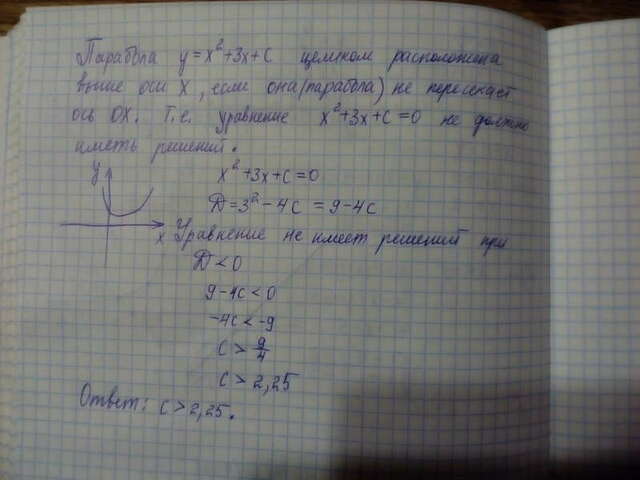 Парабола y=x²+3x+c целиком расположена
выше оси X, если она (парабола) не пересекает
ось OX. Т.е. уравнение x²+3x+c=0 не должно
иметь решений.
y
x²+3x+c=0
D=3²-4c=9-4c
x
Уравнение не имеет решений при
D<0
9-4c<0
-4c<-9
c>9/4
c>2,25
Ответ: c>2,25.